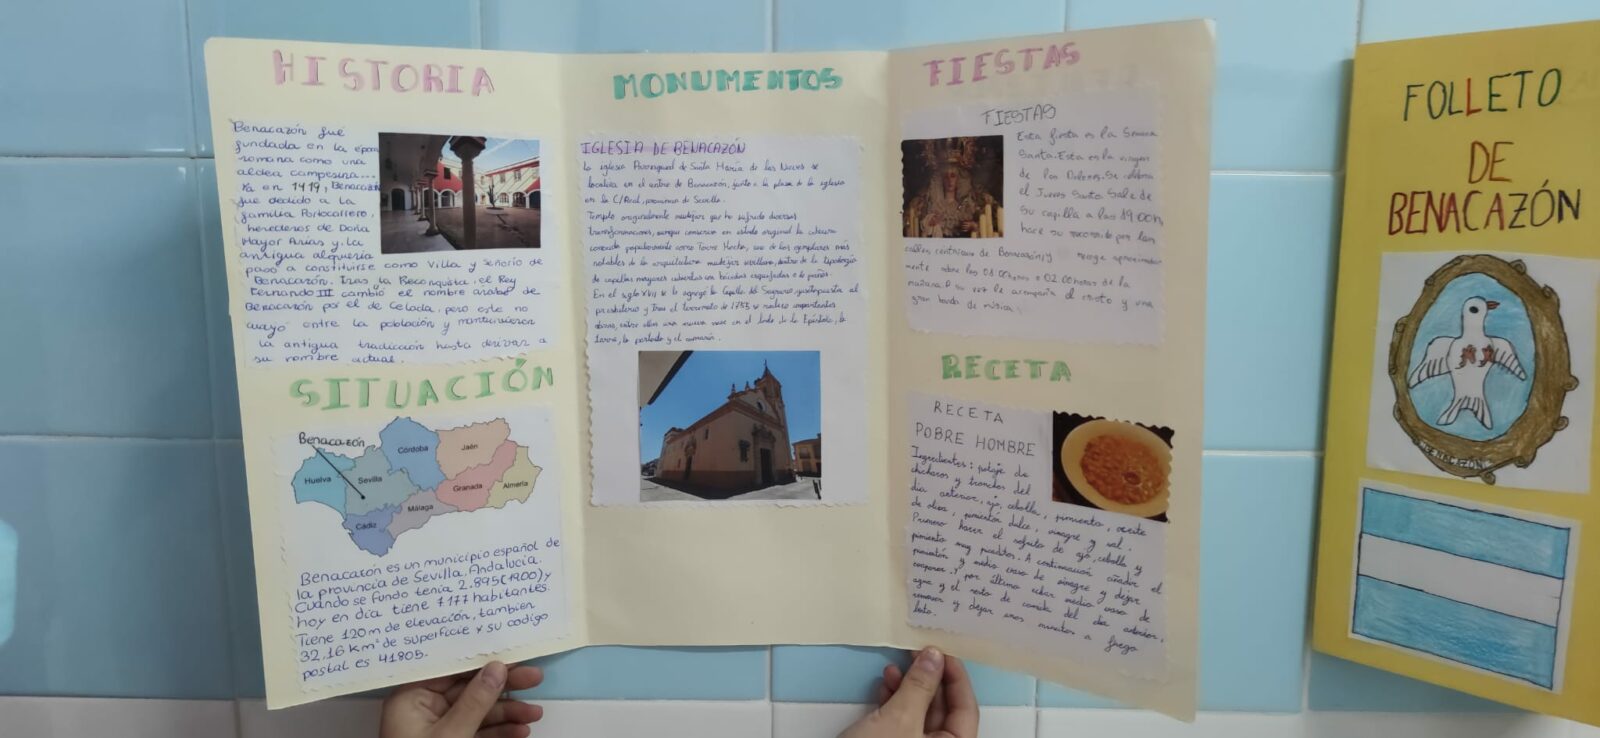 HISTORIA
Benacazón fué
fundada en la época
romana como una
aldea campesina...
Ya en 1419, Benacazón
fue dedido a la
familia Portocarrero,
herederos de Doña
Mayor Arias y la
antigua alquería
pasó a constituirse como Villa y Señorío de
Benacazón. Tras la Reconquista, el Rey
Fernando III cambió el nombre arabe de
Benacazón por el de Celada, pero este no
cuajó entre la población y mantuvieron
la antigua tradicción hasta derivar a
su nombre actual.
SITUACIÓN
Benacazón
Huelva
Sevilla
Córdoba
Jaén
Cádiz
Málaga
Granada
Almería
Benacazón es un municipio español de
la provincia de Sevilla, Andalucía.
Cuando se fundo tenía 2.895(1900) y
hoy en día tiene 7177 habitantes.
Tiene 120m de elevación, tambien
32,16 km² de superficie y su codigo
postal es 41805.
MONUMENTOS
IGLESIA DE BENACAZÓN
La iglesia Parroquial de Santa María de las Nieves se
localiza en el centro de Benacazón, junto a la plaza de la iglesia
en la C/Real, provincia de Sevilla.
Templo originalmente mudejar que ha sufrido diversas
transformaciones, aunque conserva en estado original la
conocida popularmente como Torre Mocha, uno de los ejemplares más
notables de la arquitectura mudejar sevillana, dentro de la tipología
de capillas mayores cubiertas con bóvedas esquifadas o de paños.
En el siglo XVII se le agregó la Capilla del Sagrario, yuxtapuesta al
presbiterio y tras el terremoto de 1755 se realizó importantes
obras, entre ellas una nueva nave en el lado de la Epístola, la
torre, la portada y el camarín.
FIESTAS
FIESTAS
Esta fiesta es la Semana
Santa. Esta es la virgen
de los Dolores. Se celebra
el Jueves Santo. Sale de
su capilla a las 19:00h
hace su recorrido por las
calles céntricas de Benacazón, y recoge aproximada
mente sobre las 01:00horas o 02:00horas de la
mañana. A su vez le acompaña el cristo y una
gran banda de música.
RECETA
RECETA
POBRE HOMBRE
Ingredientes: potaje de
chicharos y tronchos del
día anterior, ajo, cebolla, pimiento, aceite
de oliva, pimentón dulce, vinagre y sal.
Primero hacer el sofrito de ajo, cebolla y
pimiento muy picaditos. A continuación añadir el
pimentón y medio vaso de vinagre y dejar
evaporar. Y por último echar medio vaso de
agua y el resto de comida del día anterior,
remover y dejar unos minutos a fuego
lento.
FOLLETO
DE
BENACAZÓN
BENACAZON